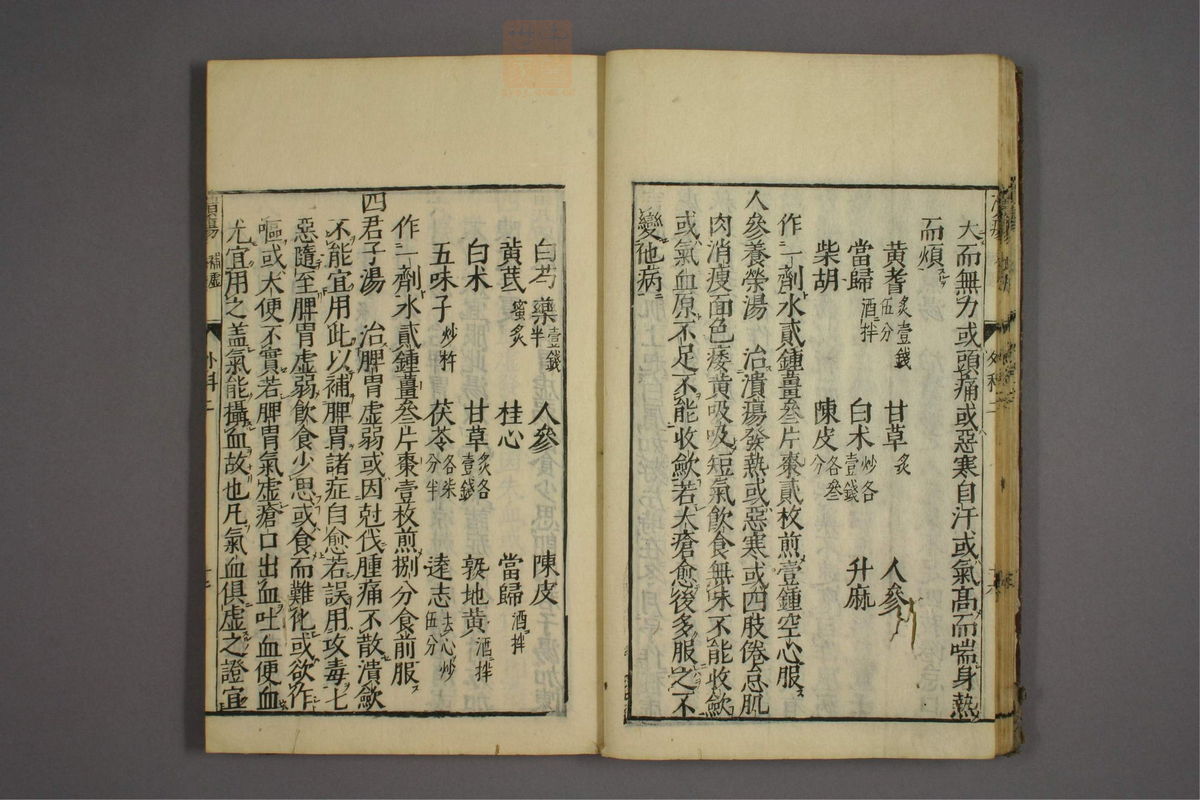 大而無力或頭痛或惡寒自汗或氣高而喘身熱
而煩
黄耆炙壹錢伍分 甘草炙 人參
當歸酒拌 白术炒各壹錢 升麻
柴胡 陳皮各叁分
作一劑水貳鍾薑叁片棗貳枚煎壹鍾空心服
人參養榮湯 治潰瘍發熱或惡寒或四肢倦怠肌
肉消瘦面色痿黄吸吸短氣飲食無味不能收斂
或氣血原不足不能收歛若大瘡愈後多服之不
變他病
白芍藥壹錢半 人參 陳皮
黄芪蜜炙 桂心 當歸酒拌
白术 甘草炙各壹錢 熟地黄酒拌
五味子炒杵 茯苓各柒分半 遠志去心炒伍分
作一劑水貳鍾薑叁片棗壹枚煎捌分食前服
四君子湯 治脾胃虚弱或因尅伐腫痛不散潰歛
不能宜用此以補脾胃諸症自愈若誤用攻毒七
惡隨至脾胃虚弱飲食少思或食而難化或欲作
嘔或大便不實若脾胃氣虚瘡口出血吐血便血
尤宜用之盖氣能攝血故也凡氣血俱虚之證宜
瘍 補虚 外科二